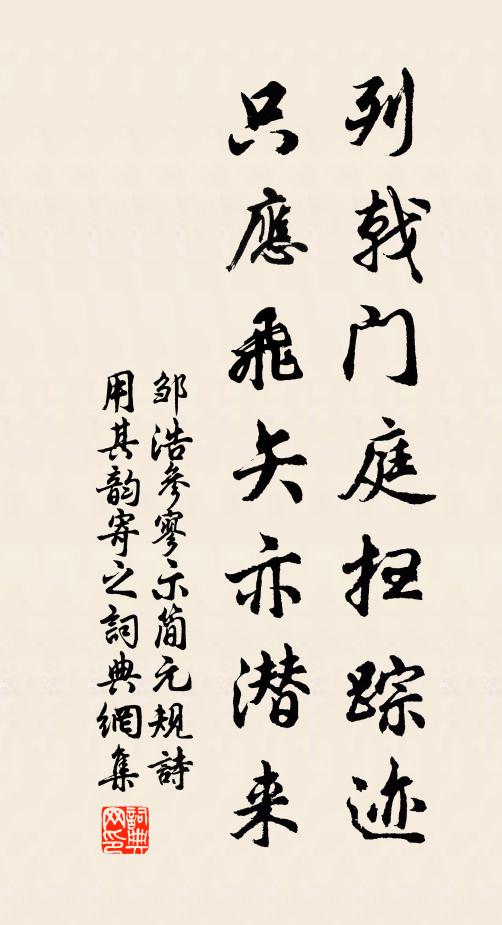 列戟门庭扫踪迹
只應飛矢亦潜来
邹浩參寥示简元規詩
用其韵寄之詞典網集
詞典
网印